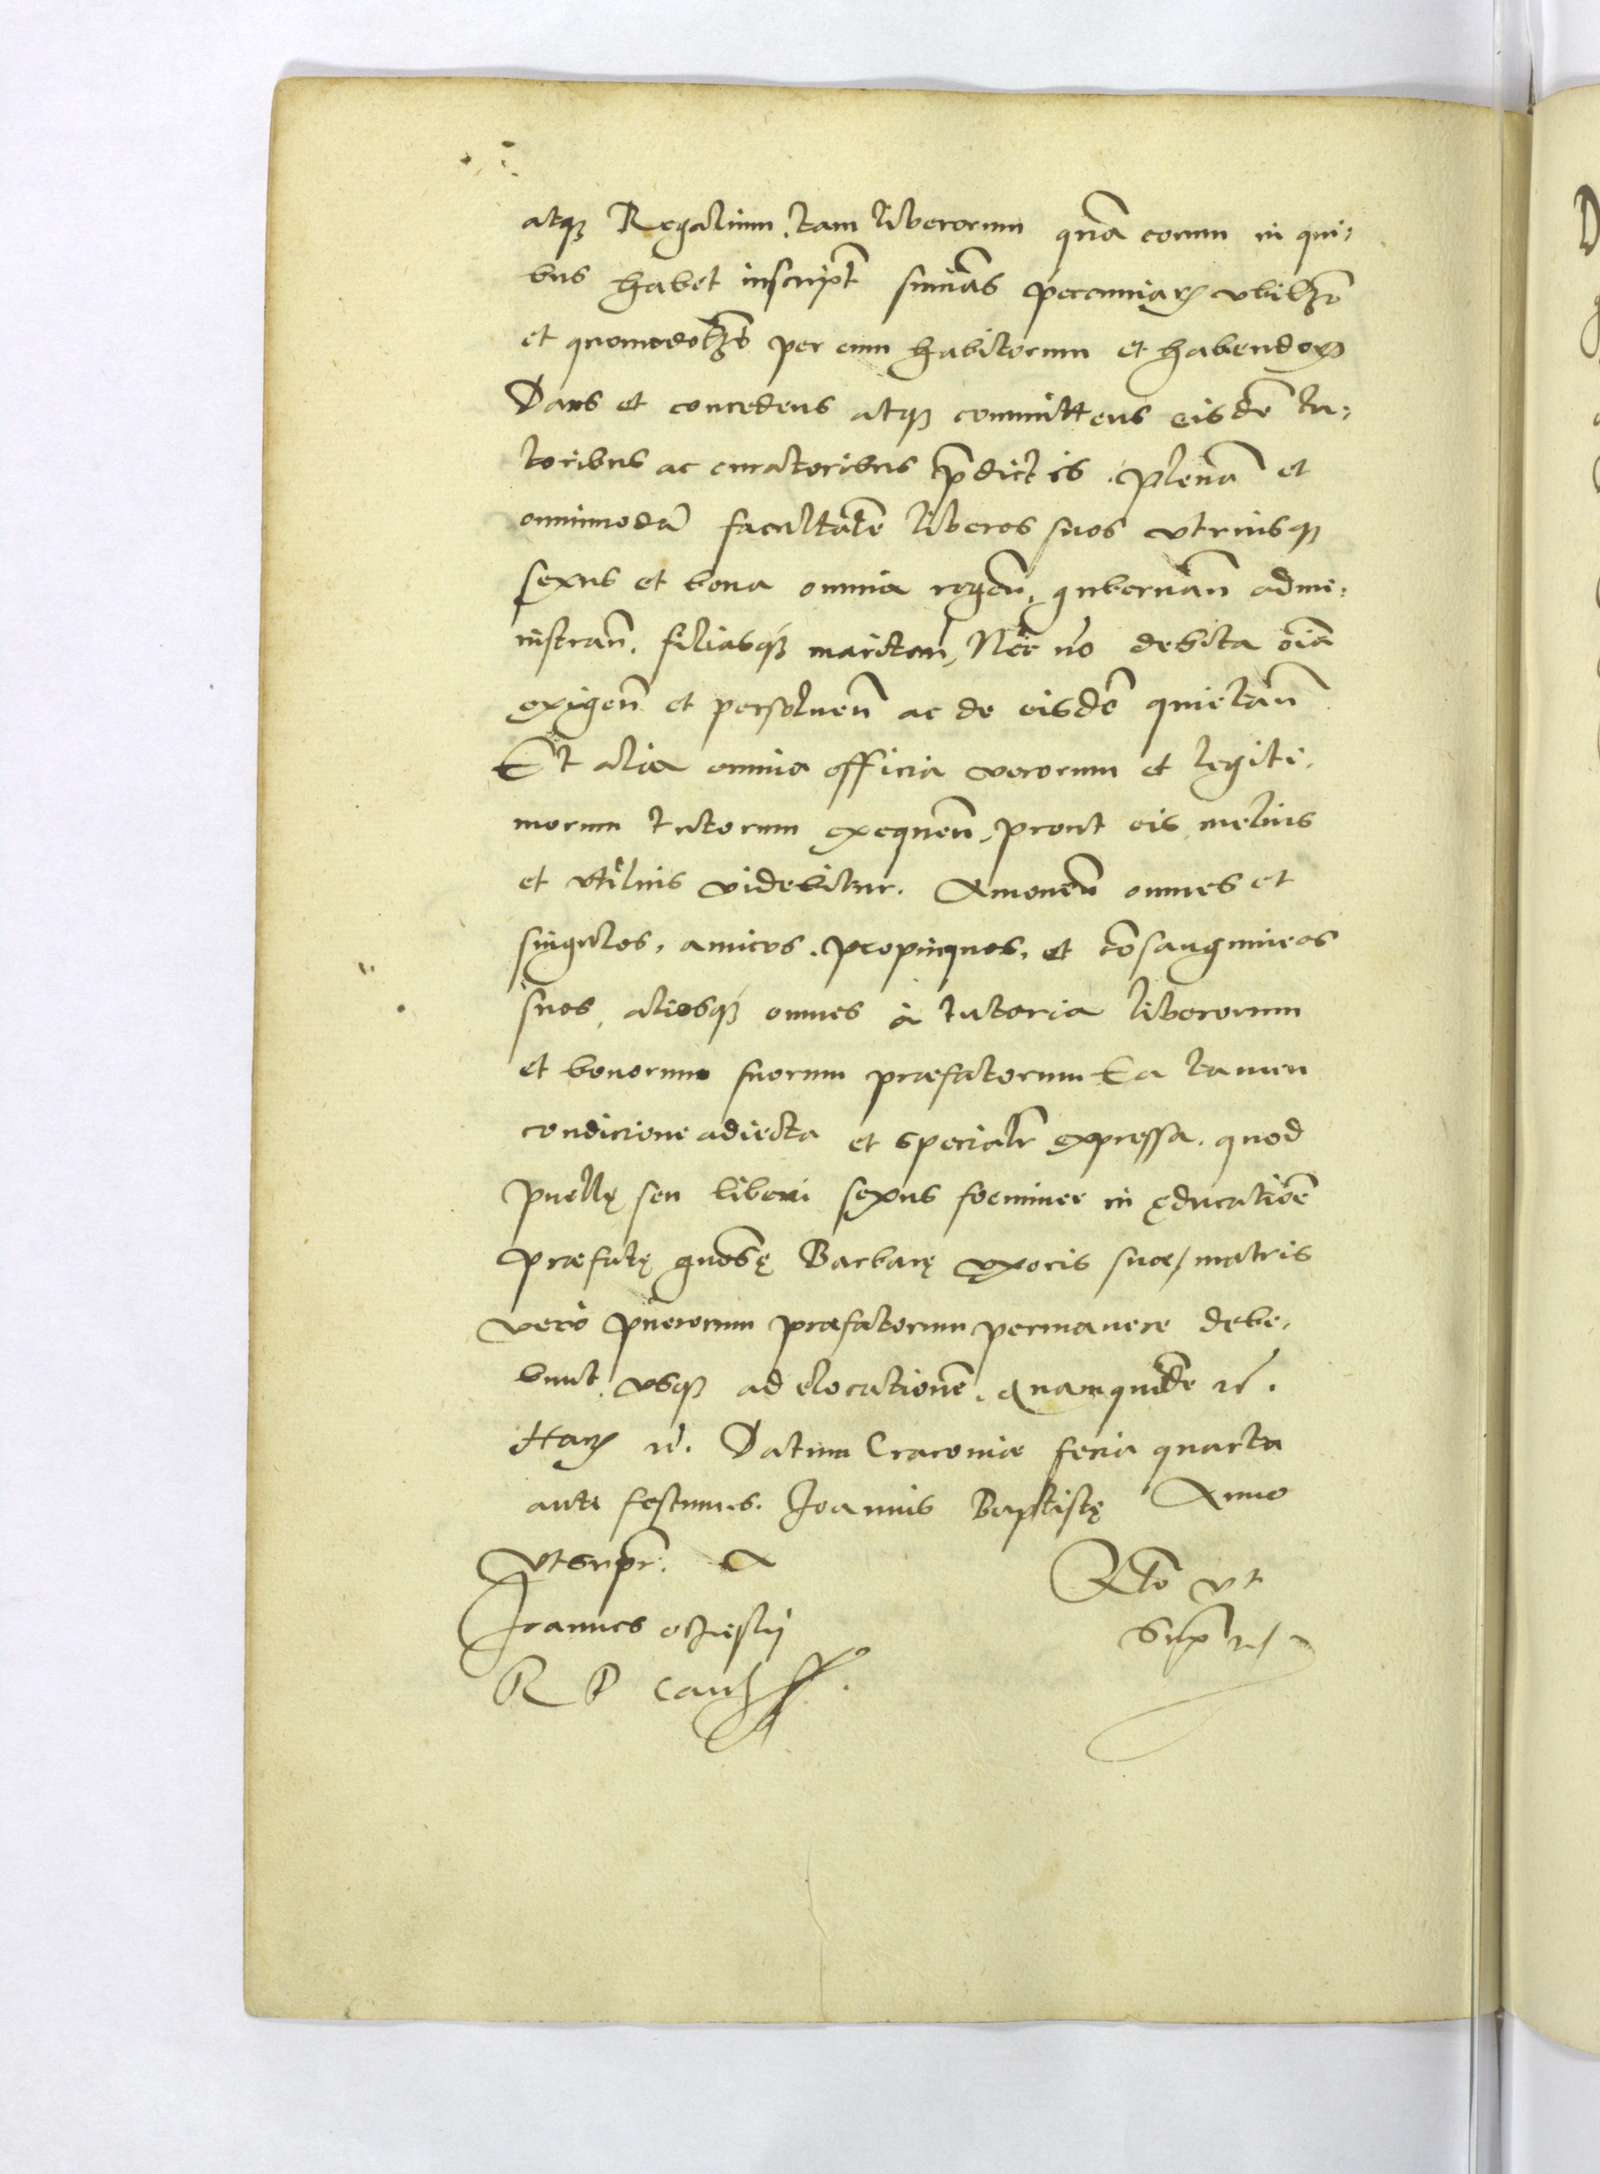 atq Regalium, tam liberorum quã eorum in qui-
bus habet inscript sum̃as pecuniar vbilꝫ
et quomodolꝫ per eum habitorum et habendor
Dans et concedens atq committens eisdẽ tu-
toribus ac curatoribus p̃dictis. plenã et
omnimodã facultatẽ liberos suos vtriusq
sexus et bona omnia regeñ, gubernañ admi-
nistrañ. filiasq maritañ, Nec nõ debita oĩa
exigeñ et persolueñ ac de eisdẽ quietañ
Et alia omnia officia verorum et legiti-
morum tutorum exequeñ, prout eis melius
et vtilius videbitur. Amoueñ omnes et
singulos, amicos, propinquos, et cõsanguineos
suos, aliosq omnes à tutoria liberorum
et bonorum suorum præfatorum Ea tamen
condicione adiecta et specialr expressa. quod
puellę seu liberi sexus foeminee in ęducatiõe
præfatę gnosę Barbarę vxoris suæ, matris
verò puerorum præfatorum permanere debe-
bunt, vsq ad elocationẽ. Quamquidẽ rc.
Har rc. Datum Cracouiæ feria quarta
ante festum s. Joannis Baptistę Anno
vt supr.
Joannes Ocieski
R P Canc
Rlo vt
Supr